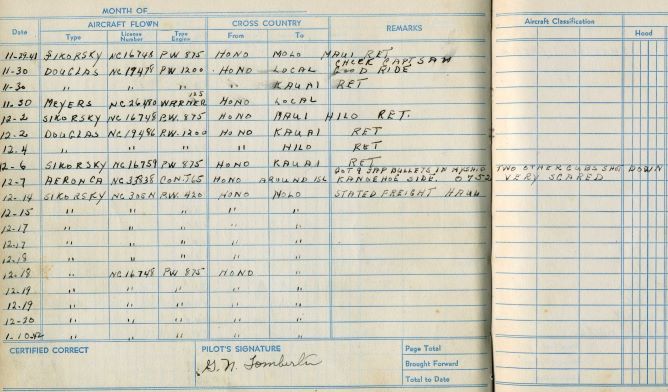 MONTH OF
Date AIRCRAFT FLOWN CROSS COUNTRY REMARKS Aircraft Classification
Type License Number Type Engine From To Hood
11-29-41 SIKORSKY NC16748 P.W. 875 HONO MOLO MAUI RET
CHECK CAPT SAM
11-30 DOUGLAS PW 1200 HONO LOCAL GOOD RIDE
11-30 " " " " KAUAI RET
125
11-30 MEYERS NC26480 WARNER HONO LOCAL
12-2 SIKORSKY NC16748 P.W. 875 HONO MAUI HILO RET.
12-2 DOUGLAS P.W. 1200 HONO KAUAI RET
12-4 " " " " HILO RET
12-6 SIKORSKY NC16759 PW 875 HONO KAUAI RET
GOT 9 JAP BULLETS IN MY SHIP TWO OTHER CUBS SHOT DOWN
12-7 AERONCA NC33838 CONT 65 HONO AROUND ISL SIDE. 0752 VERY SCARED
12-14 SIKORSKY P.W. 420 HONO MOLO STATED FREIGHT HAUL
12-15 " " " "
12-17 " " " "
12-17 " " " "
12-18 " " " "
12-18 " NC16748 P.W. 875 HONO "
12-19 " " " " "
12-19 " " " " "
12-20 " " " " "
1-10-42 " " " " "
CERTIFIED CORRECT PILOT'S SIGNATURE Page Total
G. N. Tomberlin Brought Forward
Total to Date